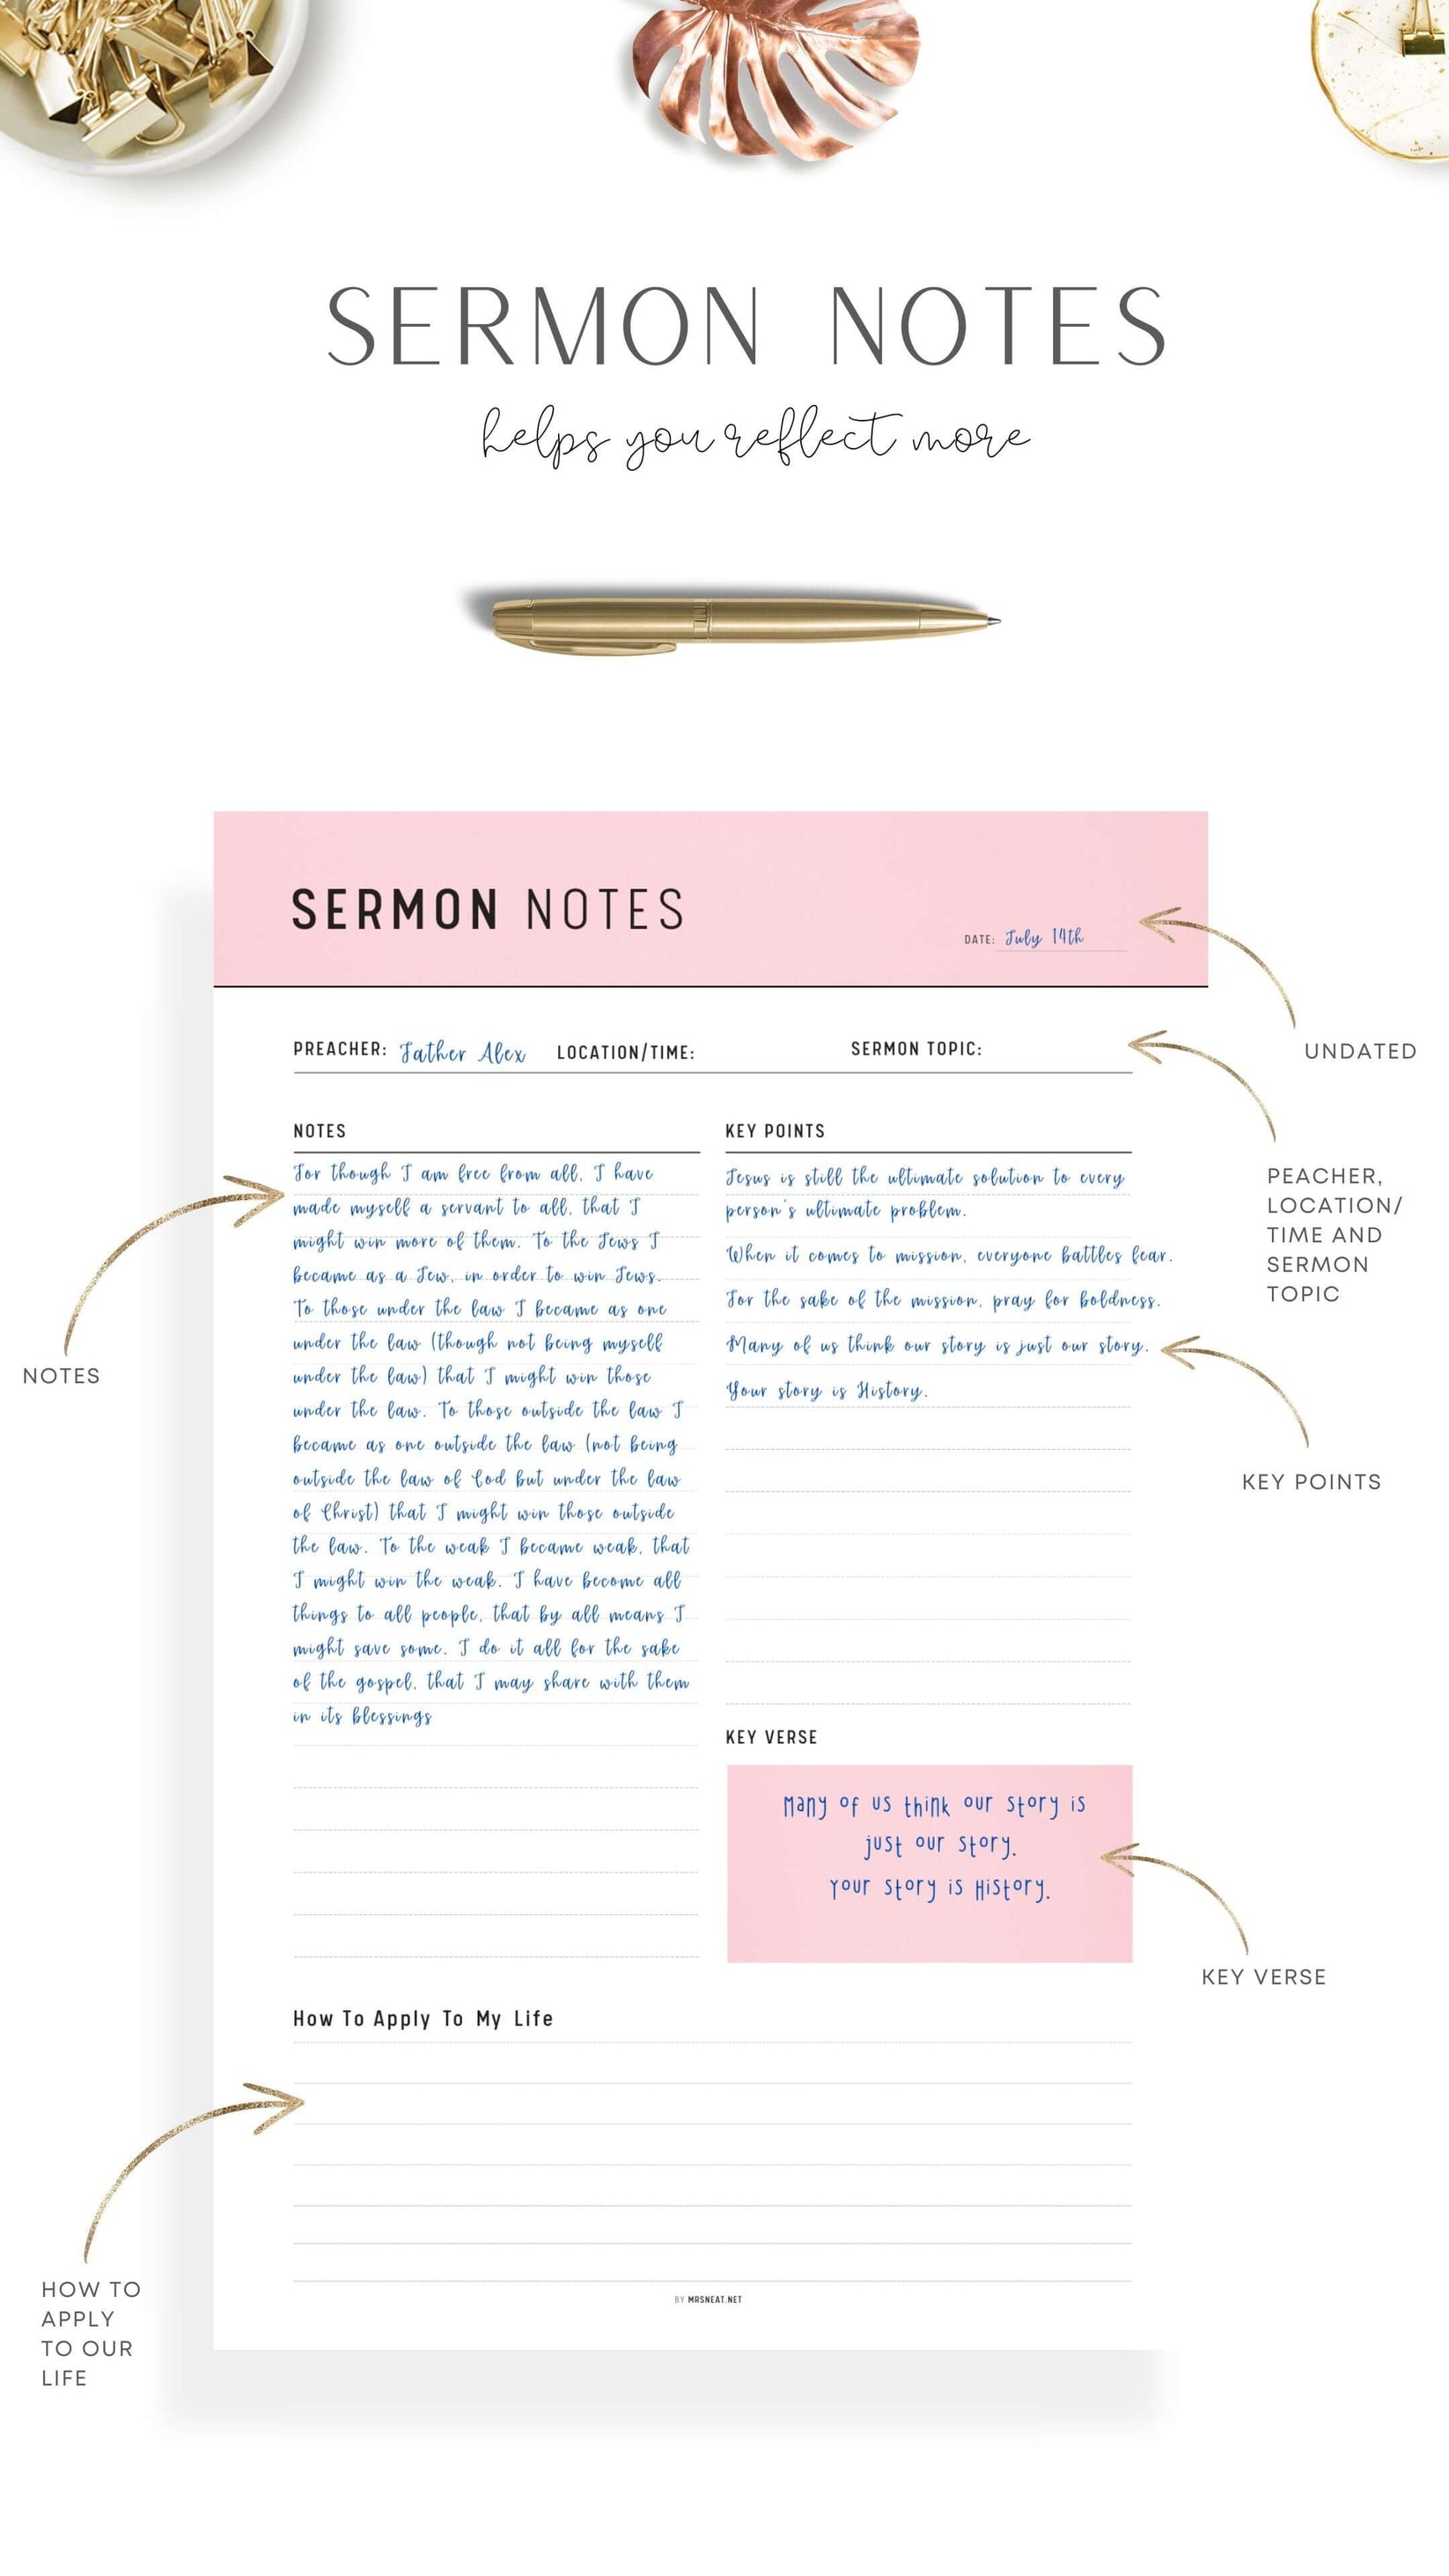 SERMON NOTES
helps you reflect more
SERMON NOTES
DATE: July 14th
UNDATED
PREACHER: Father Alex LOCATION/TIME: SERMON TOPIC:
PEACHER,
LOCATION/
TIME AND
SERMON
TOPIC
NOTES
NOTES
For though I am free from all, I have
made myself a servant to all, that I
might win more of them. To the Jews I
became as a Jew, in order to win Jews.
To those under the law I became as one
under the law (though not being myself
under the law) that I might win those
under the law. To those outside the law I
became as one outside the law (not being
outside the law of God but under the law
of Christ) that I might win those outside
the law. To the weak I became weak, that
I might win the weak. I have become all
things to all people, that by all means I
might save some. I do it all for the sake
of the gospel, that I may share with them
in its blessings
KEY POINTS
Jesus is still the ultimate solution to every
person's ultimate problem.
When it comes to mission, everyone battles fear.
For the sake of the mission, pray for boldness.
Many of us think our story is just our story.
Your story is History.
KEY POINTS
KEY VERSE
Many of us think our story is
just our story.
Your story is History.
KEY VERSE
How To Apply To My Life
HOW TO
APPLY
TO OUR
LIFE
BY MRSNEAT.NET